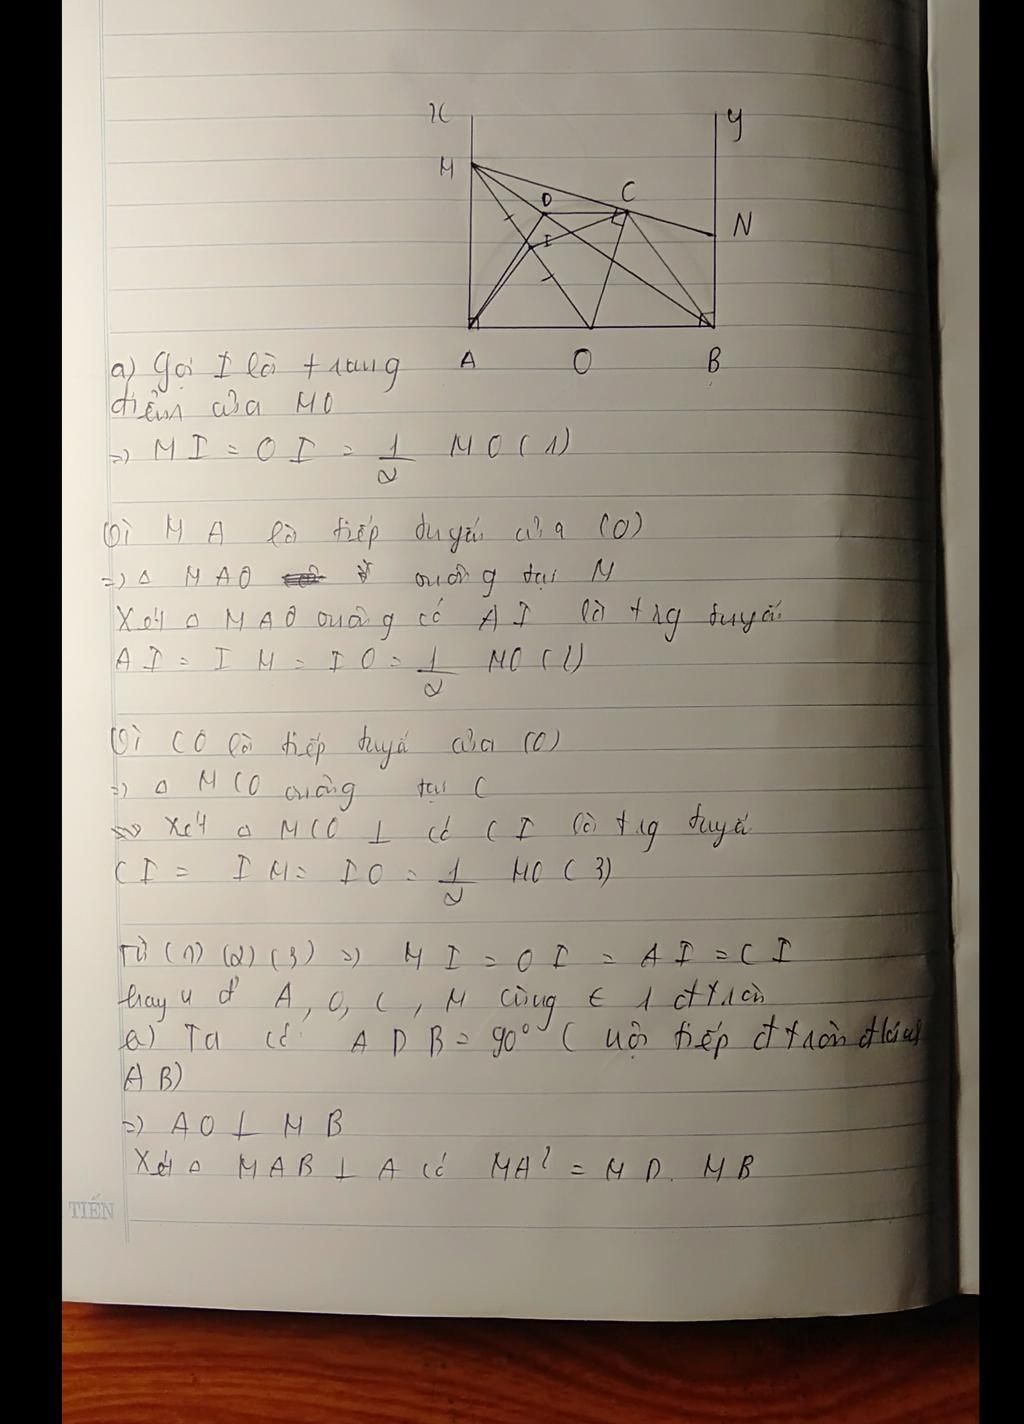 x y
M D C
I N
A O B
a) Gọi I là trung
điểm của MO
=> MI = OI = 1/2 MO (1)
Vì MA là tiếp tuyến của (O)
=> Δ MAO vuông tại M
Xét Δ MAO vuông có AI là trg tuyến
AI = IM = IO = 1/2 MO (2)
Vì CO là tiếp tuyến của (O)
=> Δ MCO vuông tại C
=> Xét Δ MCO ⊥ có CI là trg tuyến
CI = IM = IO = 1/2 MO (3)
Từ (1) (2) (3) => MI = OI = AI = CI
hay 4 đ' A, O, C, M cùng ∈ 1 đtròn
a) Ta có ADB = 90° ( nội tiếp đtròn đkính
AB)
=> AD ⊥ MB
Xét Δ MAB ⊥ A có MA² = MD. MB
TIẾN